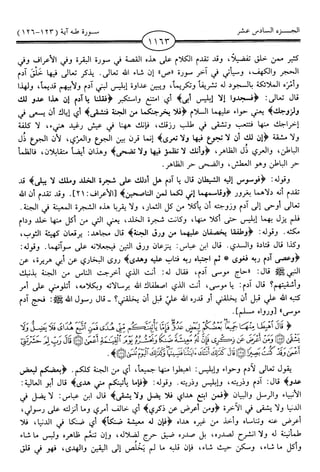 الجزء السادس عشر
سورة طه آية (١٢٣-١٢٦)
١١٦٣
كثير ممن خلق تفضيلًا، وقد تقدم الكلام على هذه القصة في سورة البقرة وفي الأعراف وفي
الحجر والكهف، وسيأتي في آخر سورة «ص» إن شاء الله تعالى. يذكر تعالى فيها خلق آدم
وأمره الملائكة بالسجود له تشريفاً وتكريماً، ويبين عداوة إبليس لبني آدم ولأبيهم قديماً، ولهذا
قال تعالى: ﴿فسجدوا إلا إبليس أبى﴾ أي امتنع واستكبر ﴿فقلنا يا آدم إن هذا عدو لك
ولزوجك﴾ يعني حواء عليهما السلام ﴿فلا يخرجنكما من الجنة فتشقى﴾ أي إياك أن يسعى في
إخراجك منها فتتعب وتشقى في طلب رزقك، فإنك ههنا في عيش رغيد هنيء، لا كلفة
ولا مشقة ﴿إن لك أن لا تجوع فيها ولا تعرى﴾ إنما قرن بين الجوع والعري، لأن الجوع ذل
الباطن، والعري ذل الظاهر، ﴿وأنك لا تظمأ فيها ولا تضحى﴾ وهذان أيضاً متقابلان، فالظمأ
حر الباطن وهو العطش، والضحى حر الظاهر.
وقوله: ﴿فوسوس إليه الشيطان قال يا آدم هل أدلك على شجرة الخلد وملك لا يبلى﴾ قد
تقدم أنه دلاهما بغرور ﴿وقاسمهما إني لكما لمن الناصحين﴾ [الأعراف: ٢١]. وقد تقدم أن الله
تعالى أوحى إلى آدم وزوجته أن يأكلا من كل الثمار، ولا يقربا هذه الشجرة المعينة في الجنة.
فلم يزل بهما إبليس حتى أكلا منها، وكانت شجرة الخلد، يعني التي من أكل منها خلد ودام
مكثه. وقوله: ﴿وطفقا يخصفان عليهما من ورق الجنة﴾ قال مجاهد: يرقعان كهيئة الثوب،
وكذا قال قتادة والسدي. قال ابن عباس: ينزعان ورق التين فيجعلانه على سوآتهما. وقوله:
﴿وعصى آدم ربه فغوى * ثم اجتباه ربه فتاب عليه وهدى﴾ روى البخاري عن أبي هريرة، عن
النبي ﷺ قال: «حاج موسى آدم، فقال له: أنت الذي أخرجت الناس من الجنة بذنبك
وأشقيتهم؟ قال آدم: يا موسى، أنت الذي اصطفاك الله برسالاته وبكلامه، أتلومني على أمر
كتبه الله علي قبل أن يخلقني أو قدره الله علي قبل أن يخلقني؟ ـ قال رسول الله ﷺ: فحج آدم
موسى» [ورواه مسلم].
﴿ قَالَ اهْبِطَا مِنْهَا جَمِيعًا بَعْضُكُمْ لِبَعْضٍ عَدُوٌّ فَإِمَّا يَأْتِيَنَّكُم مِّنِّي هُدًى فَمَنِ اتَّبَعَ هُدَايَ فَلَا يَضِلُّ وَلَا
يقول تعالى لآدم وحواء وإبليس: اهبطوا منها جميعاً، أي من الجنة كلكم. ﴿بعضكم لبعض
عدو﴾ قال: آدم وذريته، وإبليس وذريته. وقوله: ﴿فإما يأتينكم مني هدى﴾ قال أبو العالية:
الأنبياء والرسل والبيان ﴿فمن اتبع هداي فلا يضل ولا يشقى﴾ قال ابن عباس: لا يضل في
الدنيا ولا يشقى في الآخرة ﴿ومن أعرض عن ذكري﴾ أي خالف أمري وما أنزلته على رسولي،
أعرض عنه وتناساه وأخذ من غيره هداه ﴿فإن له معيشة ضنكاً﴾ أي ضنكا في الدنيا، فلا
طمأنينة له ولا انشراح لصدره، بل صدره ضيق حرج لضلاله، وإن تنعم ظاهره ولبس ما شاء
وأكل ما شاء، وسكن حيث شاء، فإن قلبه ما لم يخلص إلى اليقين والهدى، فهو في قلق